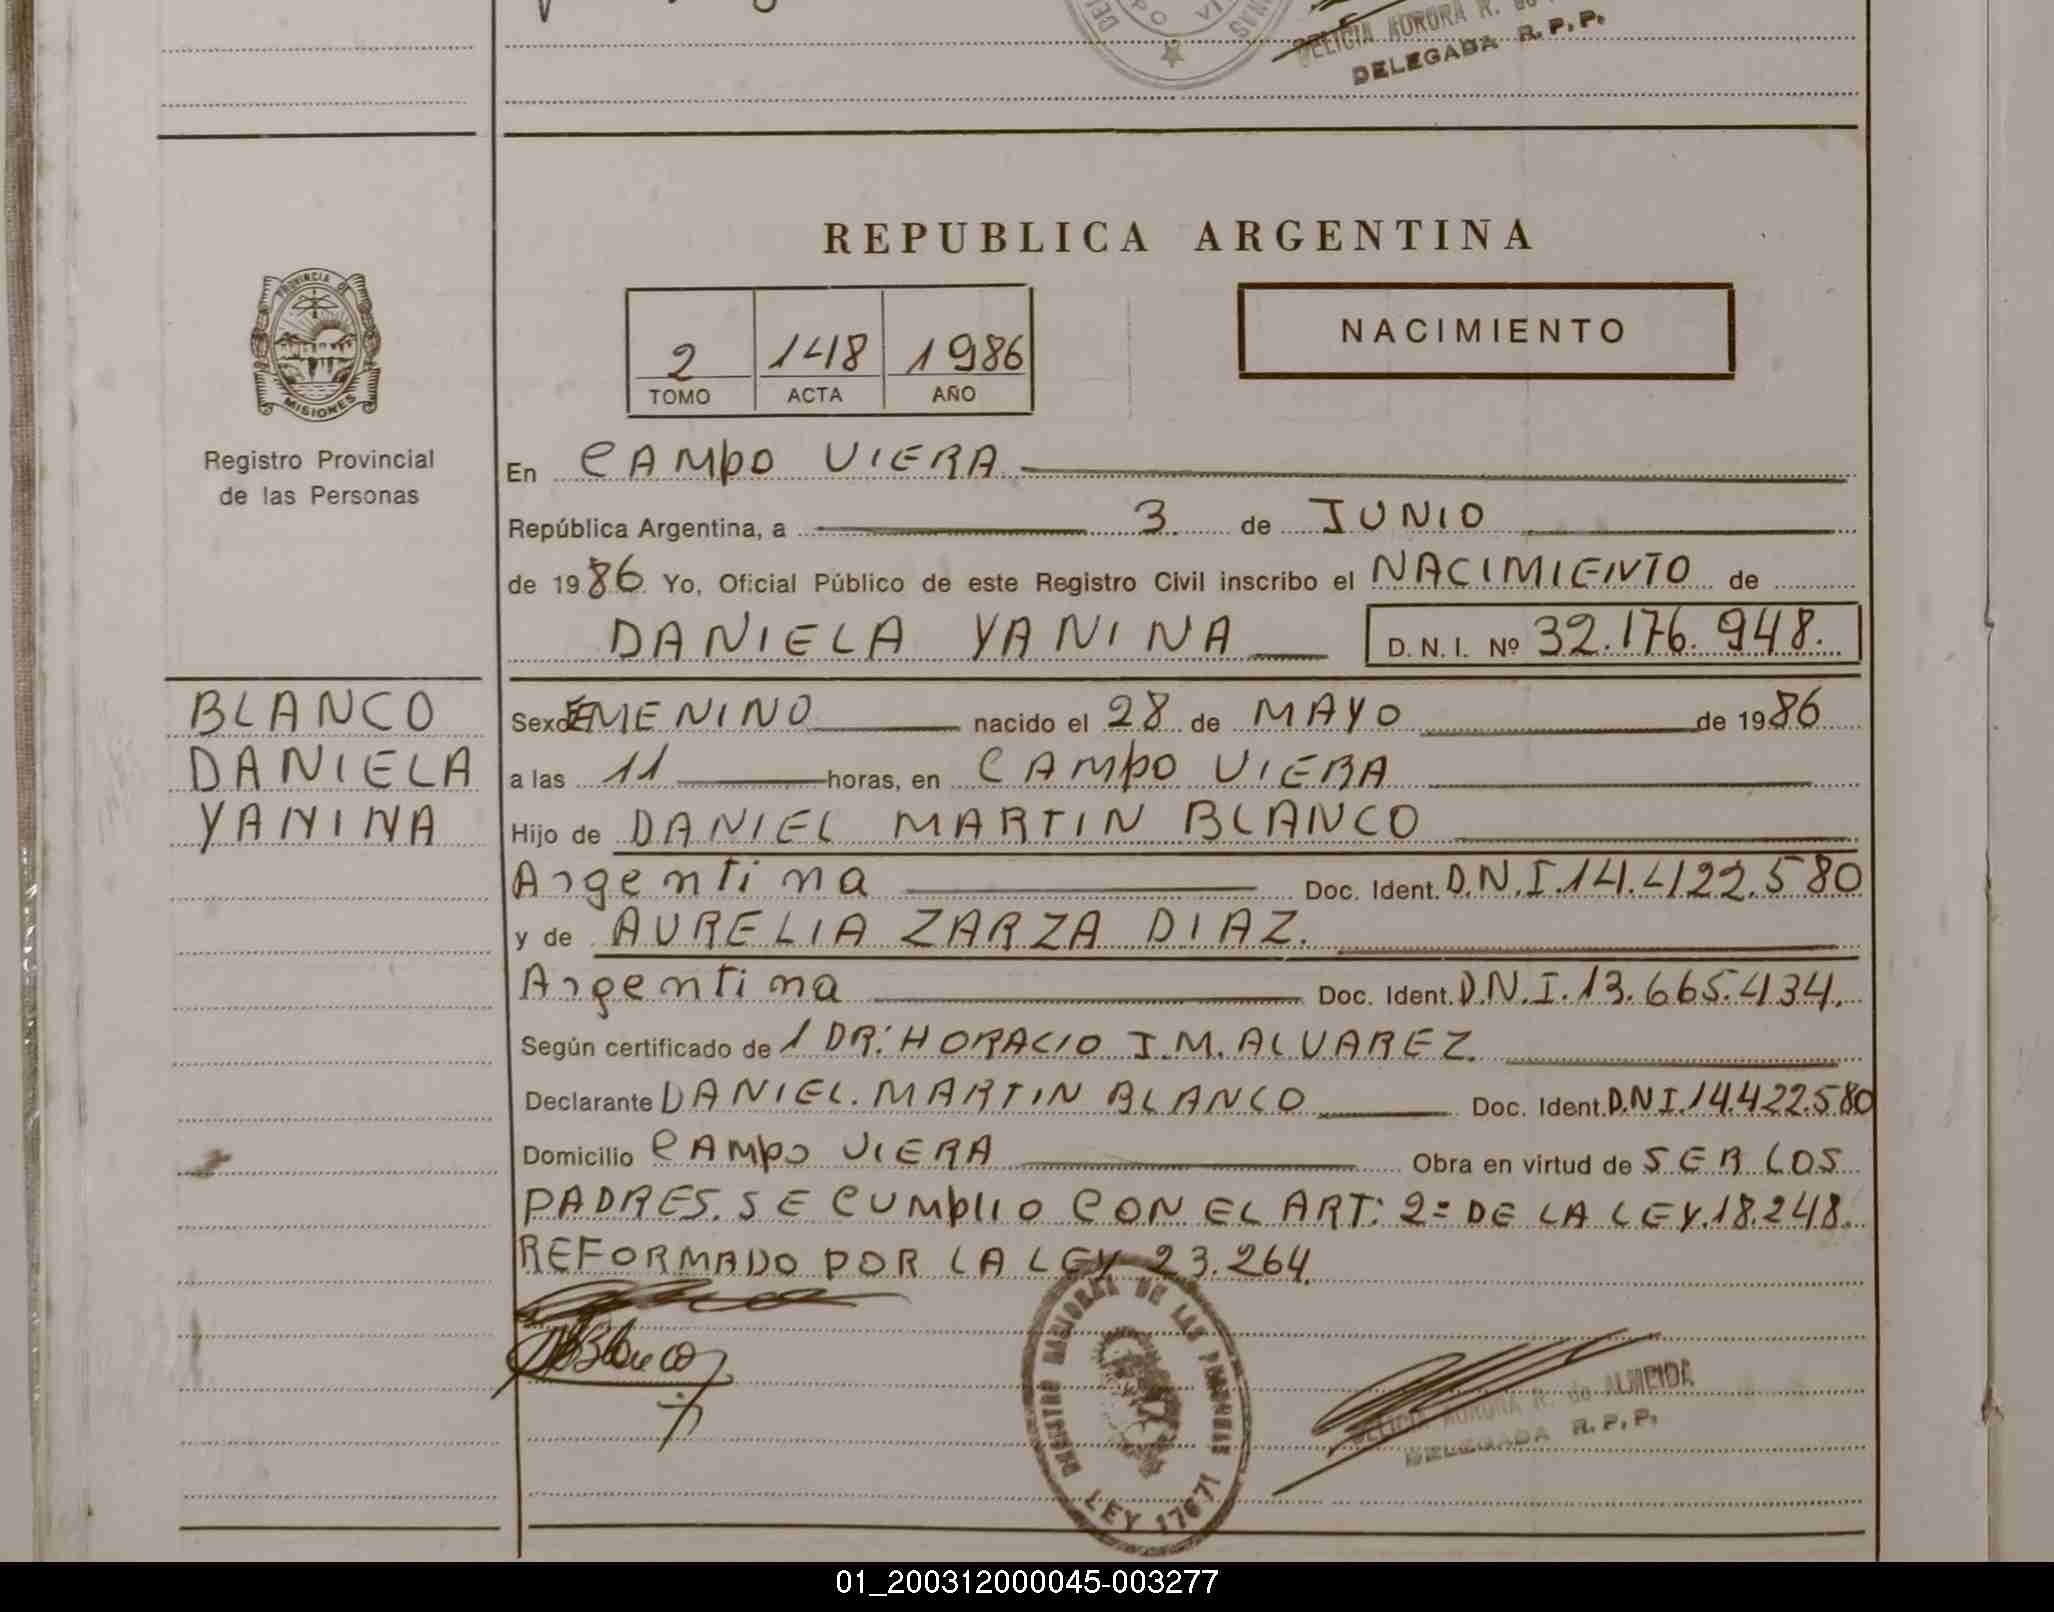 DELICIA AURORA R.
DELEGADA R.P.P.
REPUBLICA ARGENTINA
PROVINCIA DE
MISIONES
Registro Provincial
de las Personas
2 148 1986
TOMO ACTA AÑO
NACIMIENTO
En CAMPO VIERA
República Argentina, a 3 de JUNIO
de 1986 Yo, Oficial Público de este Registro Civil inscribo el NACIMIENTO de
DANIELA YANINA D. N. I. Nº 32.176.948.
BLANCO
DANIELA
YANINA
Sexo FEMENINO nacido el 28 de MAYO de 1986
a las 11 horas, en CAMPO VIERA
Hijo de DANIEL MARTIN BLANCO
Argentina Doc. Ident. D.N.I.14.422.580
y de AURELIA ZARZA DIAZ.
Argentina Doc. Ident. D.N.I.13.665.434.
Según certificado de 1 DR: HORACIO I.M. ALVAREZ.
Declarante DANIEL MARTIN BLANCO Doc. Ident. D.N I.14.422.580
Domicilio CAMPO VIERA Obra en virtud de SER LOS
PADRES. SE CUMPLIO CON EL ART: 2º DE LA LEY.18.248.
REFORMADO POR LA LEY 23.264.
Blanco
REGISTRO NACIONAL DE LAS PERSONAS
LEY 17671
DELICIA AURORA R. de ALMEIDA
DELEGADA R.P.P.
01_200312000045-003277